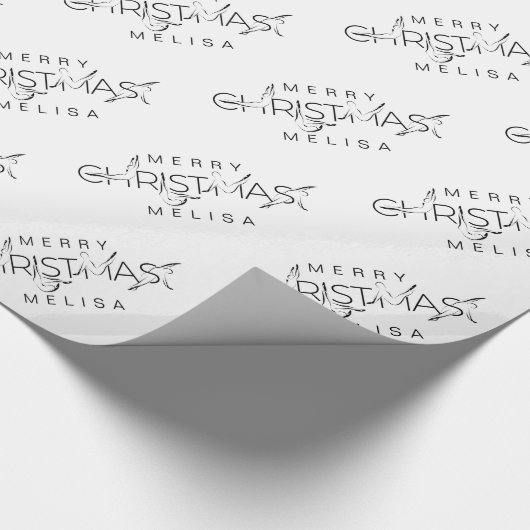 MERRY
CHRISTMAS
MELISA
MERRY
RISTMAS
MELISA
MERRY
CHRISTMAS
MELISA
MERRY
CHRISTMAS
MELISA
MERRY
CHRISTM
MELISA
MERRY
HRISTMAS
MELISA
MERRY
HRISTMAS
MELISA